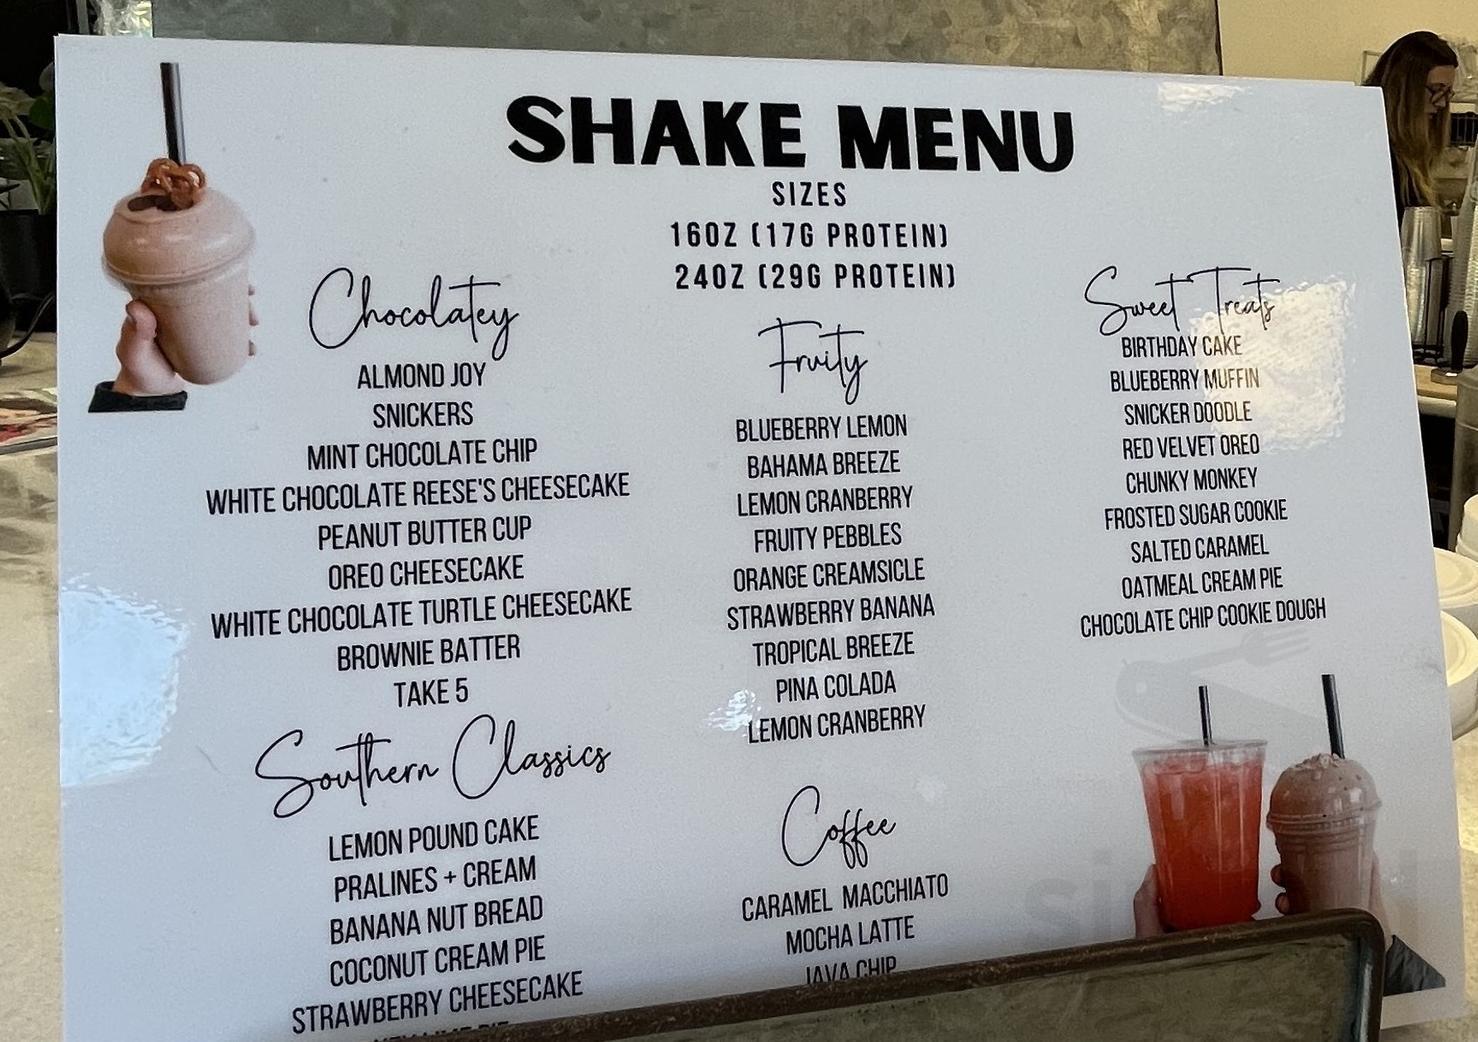 SHAKE MENU
SIZES
16OZ (17G PROTEIN)
24OZ (29G PROTEIN)
Chocolatey
ALMOND JOY
SNICKERS
MINT CHOCOLATE CHIP
WHITE CHOCOLATE REESE'S CHEESECAKE
PEANUT BUTTER CUP
OREO CHEESECAKE
WHITE CHOCOLATE TURTLE CHEESECAKE
BROWNIE BATTER
TAKE 5
Southern Classics
LEMON POUND CAKE
PRALINES + CREAM
BANANA NUT BREAD
COCONUT CREAM PIE
STRAWBERRY CHEESECAKE
KEY LIME PIE
Fruity
BLUEBERRY LEMON
BAHAMA BREEZE
LEMON CRANBERRY
FRUITY PEBBLES
ORANGE CREAMSICLE
STRAWBERRY BANANA
TROPICAL BREEZE
PINA COLADA
LEMON CRANBERRY
Coffee
CARAMEL MACCHIATO
MOCHA LATTE
JAVA CHIP
Sweet Treats
BIRTHDAY CAKE
BLUEBERRY MUFFIN
SNICKER DOODLE
RED VELVET OREO
CHUNKY MONKEY
FROSTED SUGAR COOKIE
SALTED CARAMEL
OATMEAL CREAM PIE
CHOCOLATE CHIP COOKIE DOUGH